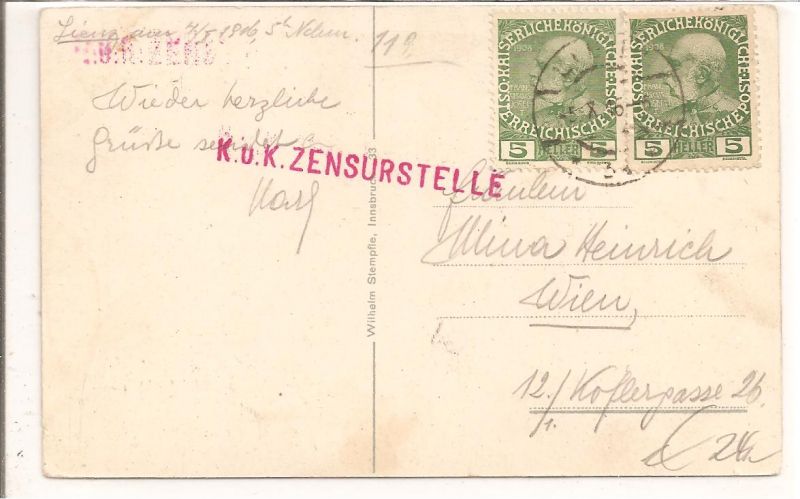 Lienz am 1916, 5h Nchm.
119
K.u.K. ZENS
Wieder herzliche
Grüße sendet
Karl
K.u.K. ZENSURSTELLE
Wilhelm Stempfle, Innsbruck 33
KAISERLICHE KÖNIGLICHE ÖSTERREICHISCHE POST
1908 1908
FRANZ JOSEF I
5 HELLER 5
KAISERLICHE KÖNIGLICHE ÖSTERREICHISCHE POST
1908
5 HELLER 5
Fräulein
Mina Heinrich
Wien,
12./1. Koflergasse 26